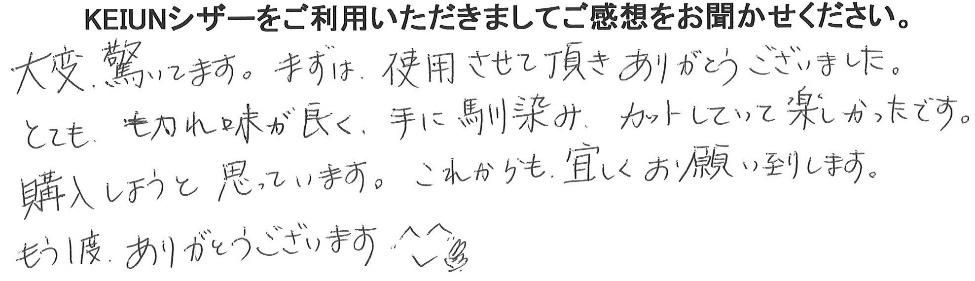 KEIUNシザーをご利用いただきましてご感想をお聞かせください。
大変、驚いてます。まずは、使用させて頂きありがとうございました。
とても、切れ味が良く、手に馴染み、カットしていって楽しかったです。
購入しようと思っています。これからも、宜しくお願い致します。
もう1度、ありがとうございます ^^